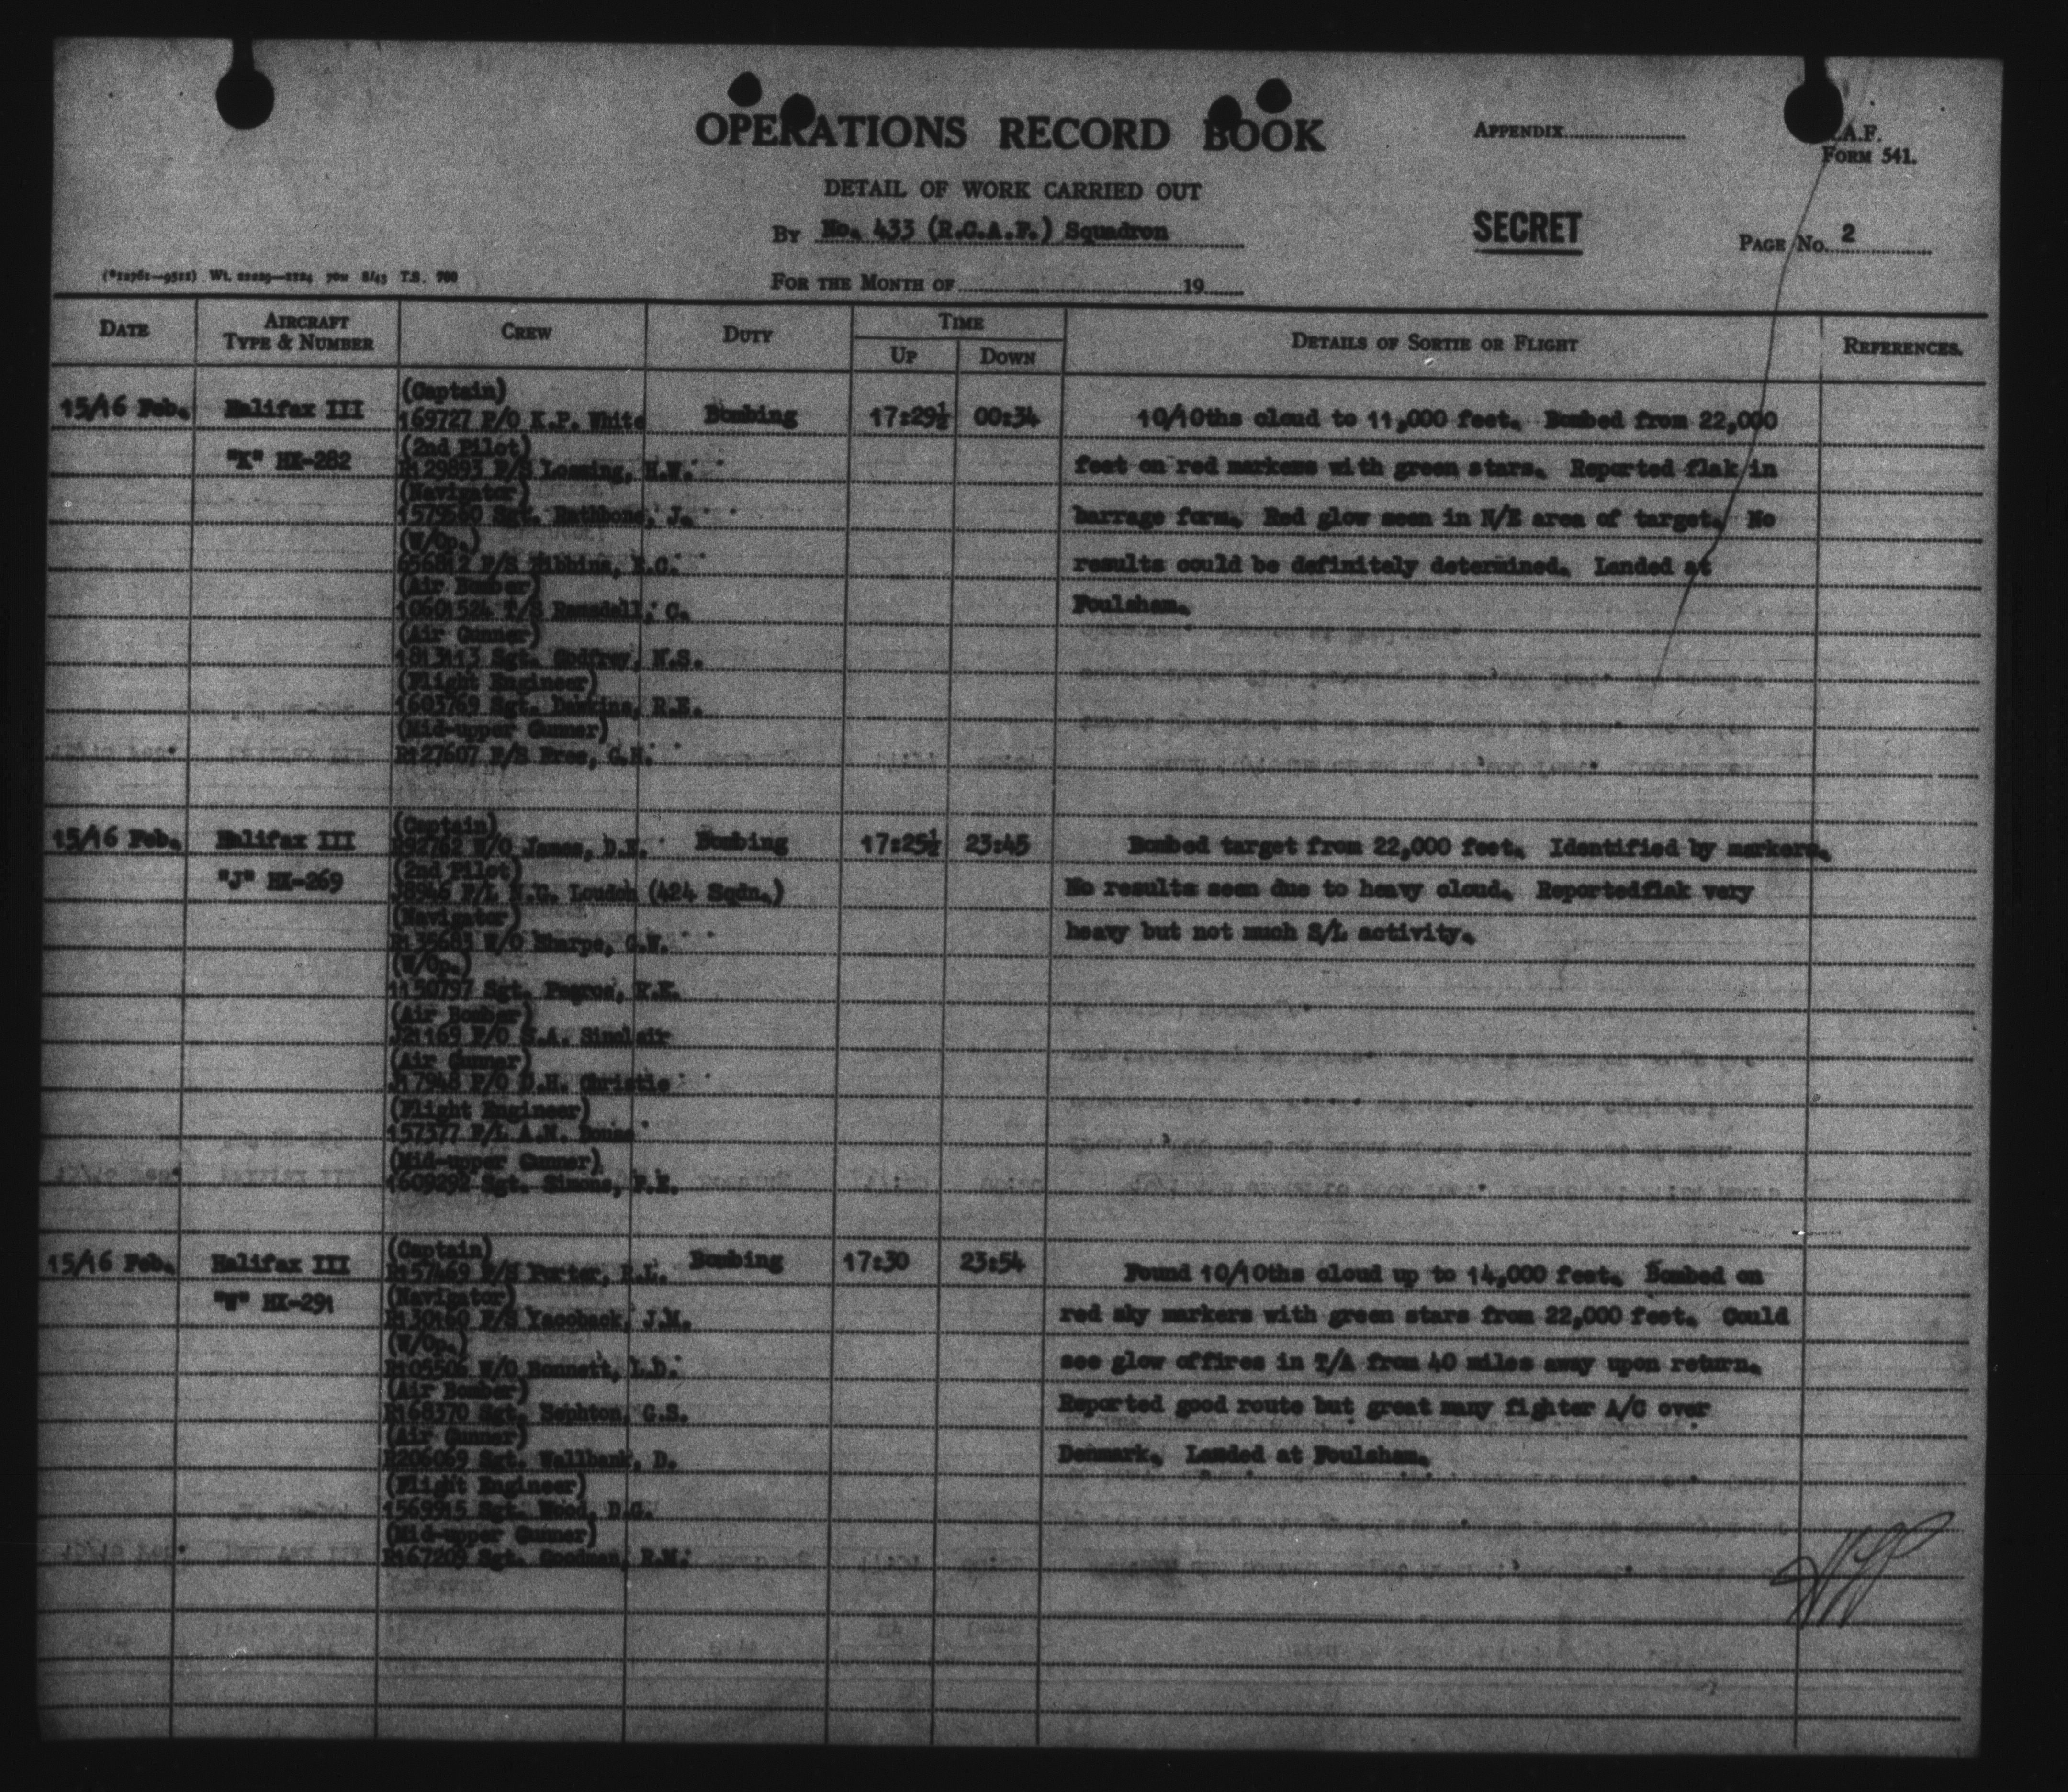 OPERATIONS RECORD BOOK
APPENDIX
R.A.F.
FORM 541.
DETAIL OF WORK CARRIED OUT
BY No. 433 (R.C.A.F.) Squadron
SECRET
PAGE No. 2
FOR THE MONTH OF 19
DATE
AIRCRAFT
TYPE & NUMBER
CREW
DUTY
TIME
UP
DOWN
DETAILS OF SORTIE OR FLIGHT
REFERENCES.
15/16 Feb. Halifax III
"X" HX-282
(Captain)
169727 P/O K.P. White
(2nd Pilot)
R129893 F/S Leaming, H.W.
(Navigator)
1579660 Sgt. Rathbone, J.
(W/Op.)
656812 F/S Tibbins,
(Air Bomber)
10601524 Ramsdell, C.
(Air Gunner)
1813113 Sgt. Godfrey, N.S.
(Flight Engineer)
1603769 Sgt. Dawkins, R.E.
(Mid-upper Gunner)
R127607 F/S Bres, G.H.
Bombing 17:29½ 00:34
10/10ths cloud to 11,000 feet. Bombed from 22,000
feet on red markers with green stars. Reported flak in
barrage form. Red glow seen in N/E area of target. No
results could be definitely determined. Landed at
Foulsham.
15/16 Feb. Halifax III
"J" HX-269
(Captain)
R92762 W/O James, D.N.
(2nd Pilot)
J8946 F/L N.G. Louden (424 Sqdn.)
(Navigator)
R135683 W/O Sharpe, G.W.
(W/Op.)
1130797 Sgt.
(Air Bomber)
J21169 F/O S.A. Sinclair
(Air Gunner)
J17948 P/O D.H. Christie
(Flight Engineer)
157377 F/L A.N.
(Mid-upper Gunner)
1609292 Sgt. Simons, P.E.
Bombing 17:25½ 23:45
Bombed target from 22,000 feet. Identified by markers.
No results seen due to heavy cloud. Reportedflak very
heavy but not much S/L activity.
15/16 Feb. Halifax III
"W" HX-291
(Captain)
R157469 F/S Porter, R.L.
(Navigator)
R130160 F/S Yacoback, J.M.
(W/Op.)
R105506 W/O Bennett, L.D.
(Air Bomber)
R168370 Sgt. Sephton, G.S.
(Air Gunner)
R206069 Sgt. Wallbank, D.
(Flight Engineer)
1569915 Sgt. Wood, D.G.
(Mid-upper Gunner)
R167209 Sgt. Goodman, R.M.
Bombing 17:30 23:54
Found 10/10ths cloud up to 14,000 feet. Bombed on
red sky markers with green stars from 22,000 feet. Could
see glow offires in T/A from 40 miles away upon return.
Reported good route but great many fighter A/C over
Denmark. Landed at Foulsham.